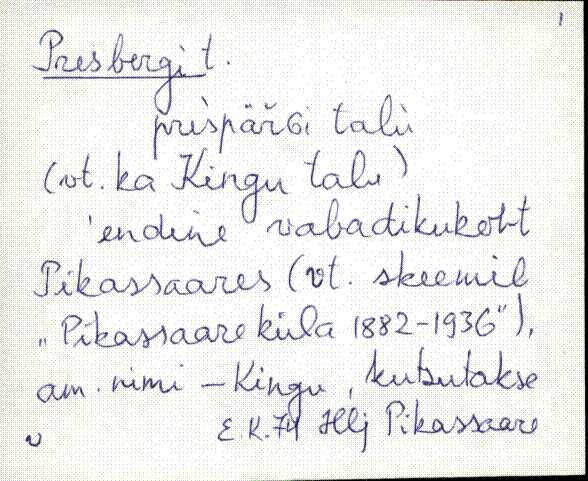 1
Presbergi t.
prìspä̀rGi talù
(vt. ka Kingu talu)
'endine vabadikukoht
Pikassaares (vt. skeemil
„Pikassaare küla 1882-1936"),
am. nimi – Kingu, kutsutakse
E.K.74 Hlj Pikassaare